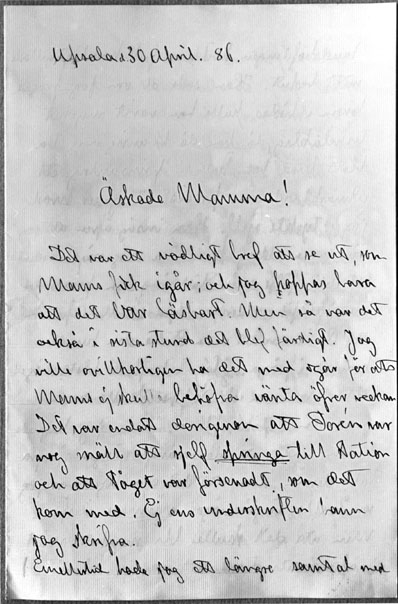 Upsala d 30 April. 86.
Älskade Mamma!
Det var ett vådligt bref att se ut, som
Mamma fick igår; och jag hoppas bara
att det var läsbart. Men så var det
också i sista stund det blef färdigt. Jag
ville ovillkorligen ha det med igår för att
Mamma ej skulle behöfva vänta öfver veckan
Det var endast derigenom att Norén var
nog snäll att sjelf springa till Station
och att Tåget var försenadt, som det
kom med. Ej ens underskriften hann
jag skrifva.
Emellertid hade jag ett längre samtal med